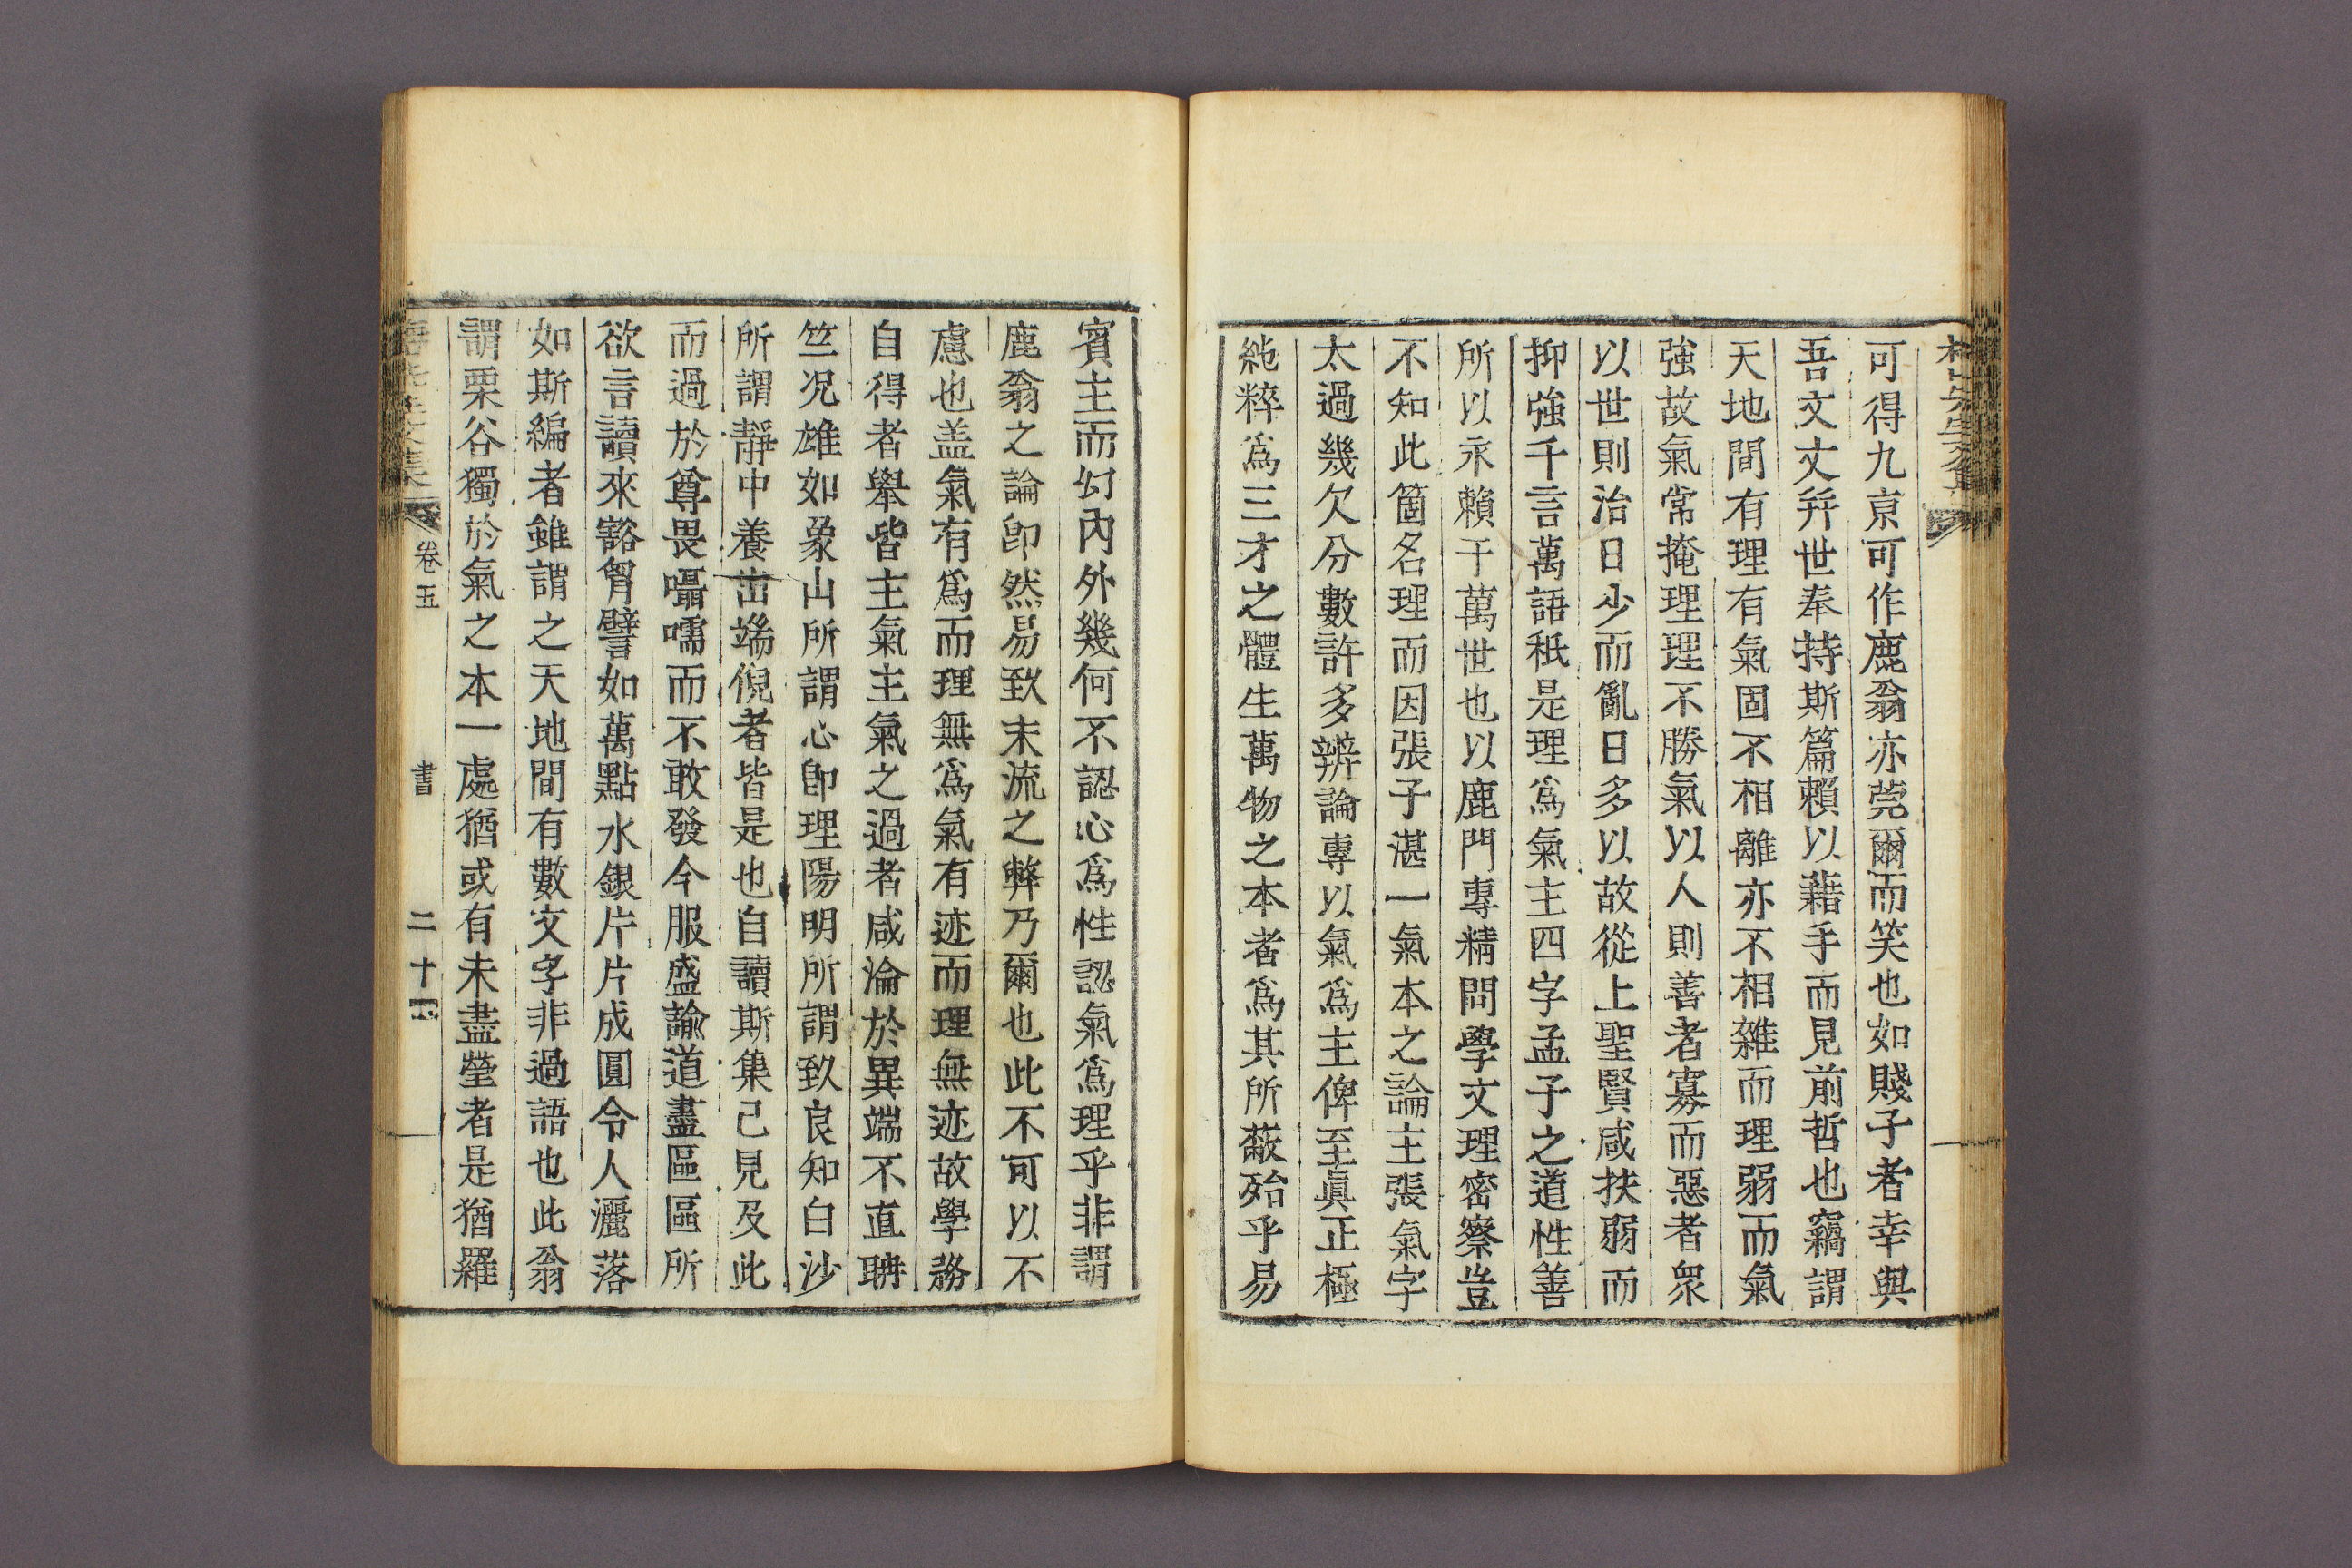 可得九京可作鹿翁亦莞爾而笑也如賤子者幸與
吾文丈幷世奉持斯篇賴以藉手而見前哲也竊謂
天地間有理有氣固不相離亦不相雜而理弱而氣
強故氣常掩理理不勝氣以人則善者寡而惡者衆
以世則治日少而亂日多以故從上聖賢咸扶弱而
抑強千言萬語秪是理爲氣主四字孟子之道性善
所以永賴于萬世也以鹿門專精問學文理密察豈
不知此箇名理而因張子湛一氣本之論主張氣字
太過幾欠分數許多辨論專以氣爲主俾至眞正極
純粹爲三才之體生萬物之本者爲其所蔽殆乎易
賓主而幻內外幾何不認心爲性認氣爲理乎非謂
鹿翁之論卽然易致末流之弊乃爾也此不可以不
慮也盖氣有爲而理無爲氣有迹而理無迹故學務
自得者舉皆主氣主氣之過者咸淪於異端不直聃
竺况雄如象山所謂心卽理陽明所謂致良知白沙
所謂靜中養出端倪者皆是也自讀斯集己見及此
而過於尊畏囁嚅而不敢發今服盛諭道盡區區所
欲言讀來豁胷譬如萬點水銀片片成圓令人灑落
如斯編者雖謂之天地間有數文字非過語也此翁
謂栗谷獨於氣之本一處猶或有未盡瑩者是猶羅
先生文集 卷五 書 二十